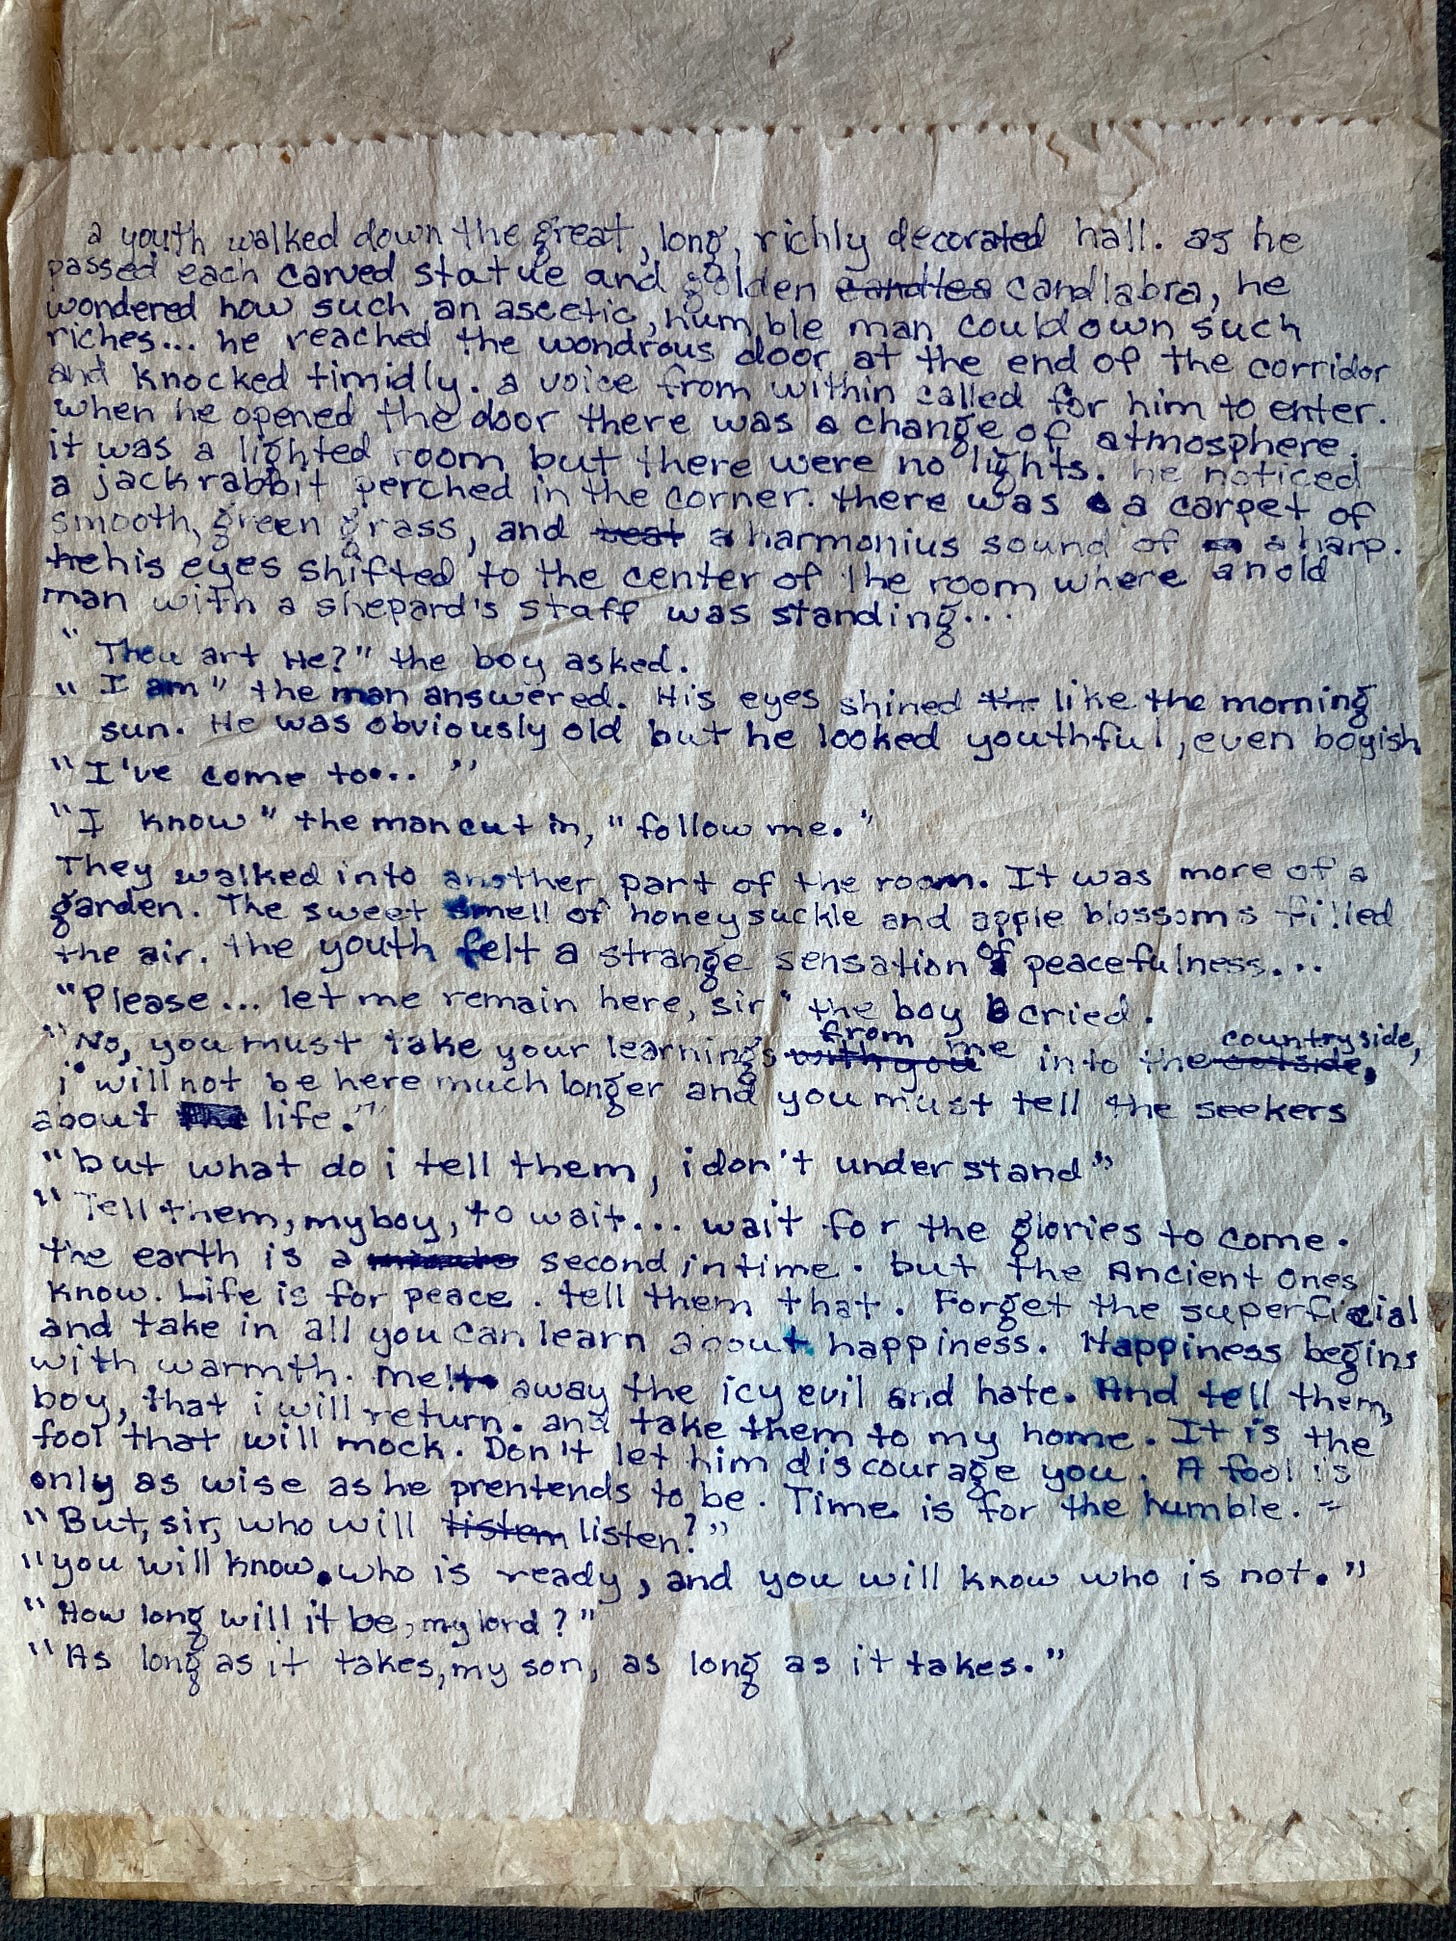 a youth walked down the great, long, richly decorated hall. as he
passed each carved statue and golden candles candlabra, he
wondered how such an ascetic, humble man could own such
riches... he reached the wondrous door at the end of the corridor
and knocked timidly. a voice from within called for him to enter.
when he opened the door there was a change of atmosphere.
it was a lighted room but there were no lights. he noticed
a jackrabbit perched in the corner. there was a carpet of
smooth, green grass, and a harmonius sound of a harp.
he his eyes shifted to the center of the room where an old
man with a shepard's staff was standing...
"Thou art He?" the boy asked.
"I am" the man answered. His eyes shined the like the morning
sun. He was obviously old but he looked youthful, even boyish
"I've come to... "
"I know" the man cut in, "follow me."
They walked into another part of the room. It was more of a
garden. The sweet smell of honeysuckle and apple blossoms filled
the air. the youth felt a strange sensation of peacefulness...
"Please... let me remain here, sir" the boy cried.
from countryside,
"No, you must take your learnings with you me into the outside,
i will not be here much longer and you must tell the seekers
about the life."
"but what do i tell them, i don't understand"
"Tell them, my boy, to wait... wait for the glories to come.
the earth is a second in time. but the Ancient ones
know. Life is for peace. tell them that. Forget the superficial
and take in all you can learn about happiness. Happiness begins
with warmth. melt away the icy evil and hate. And tell them,
boy, that i will return. and take them to my home. It is the
fool that will mock. Don't let him discourage you. A fool is
only as wise as he prentends to be. Time is for the humble.
"But, sir, who will listem listen?"
"you will know who is ready, and you will know who is not."
"How long will it be, my lord?"
"As long as it takes, my son, as long as it takes."